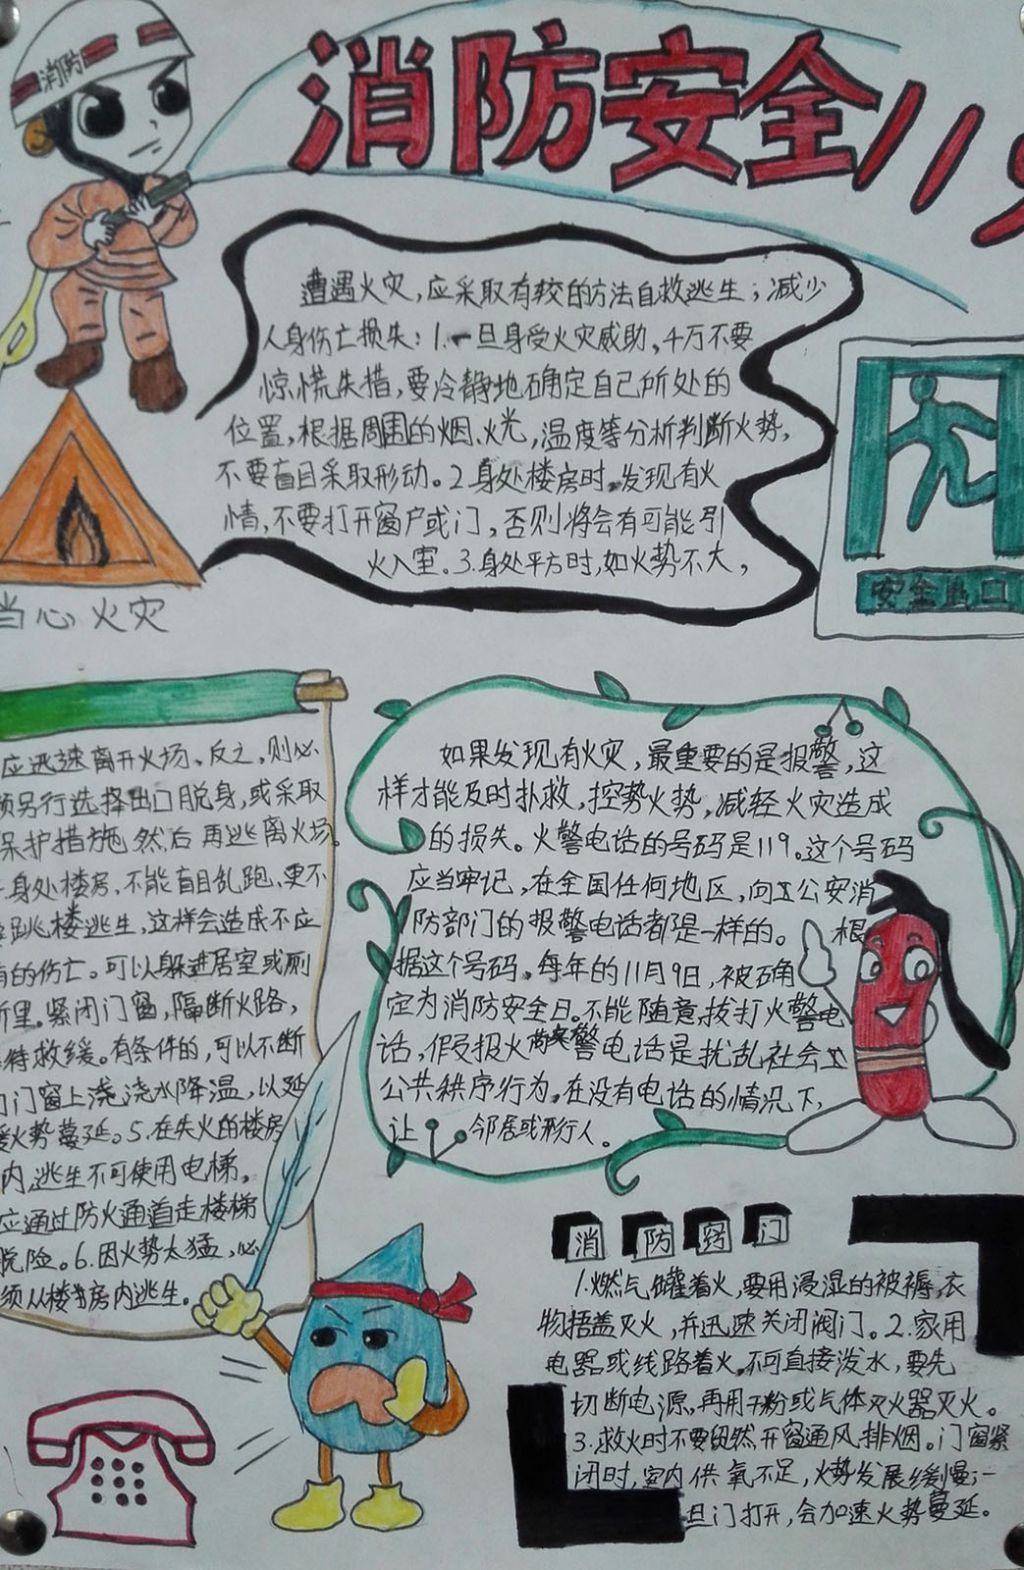 消防
消防安全119
遭遇火灾,应采取有较的方法自救逃生;减少
人身伤亡损失:1.一旦身受火灾威助,千万不要
惊慌失措,要冷静地确定自己所处的
位置,根据周围的烟、火光,温度等分析判断火势,
不要盲目采取形动。2.身处楼房时,发现有火
情,不要打开窗户或门,否则将会有可能引
火入室。3.身处平方时,如火势不大,
安全出口
当心火灾
应迅速离开火场。反之,则必
须另行选择出口脱身,或采取
保护措施,然后再逃离火场。
身处楼房,不能盲目乱跑、更不
跳楼逃生,这样会造成不应
有的伤亡。可以躲进居室或厕
所里。紧闭门窗,隔断火路,
待救缓。有条件的,可以不断
门窗上浇浇水降温,以延
缓火势蔓延。5.在失火的楼房
内,逃生不可使用电梯,
应通过防火通道走楼梯
脱险。6.因火势太猛,必
须从楼房内逃生。
如果发现有火灾,最重要的是报警,这
样才能及时扑救,控势火势,减轻火灾造成
的损失。火警电话的号码是119。这个号码
应当牢记,在全国任何地区,向公安消
防部门的报警电话都是一样的。根
据这个号码。每年的11月9日,被确
定为消防安全日。不能随意拔打火警电
话,假报火警电话是扰乱社会
公共秩序行为。在没有电话的情况下,
让邻居或形行人。
消防窍门
1.燃气罐着火,要用浸湿的被褥,衣
物捂盖灭火,并迅速关闭阀门。2.家用
电器或线路着火。不可直接泼水,要先
切断电源,再用干粉或气体灭火器灭火。
3.救火时不要贸然开窗通风排烟。门窗紧
闭时,室内供氧不足,火势发展缓慢;一
旦门打开,会加速火势蔓延。